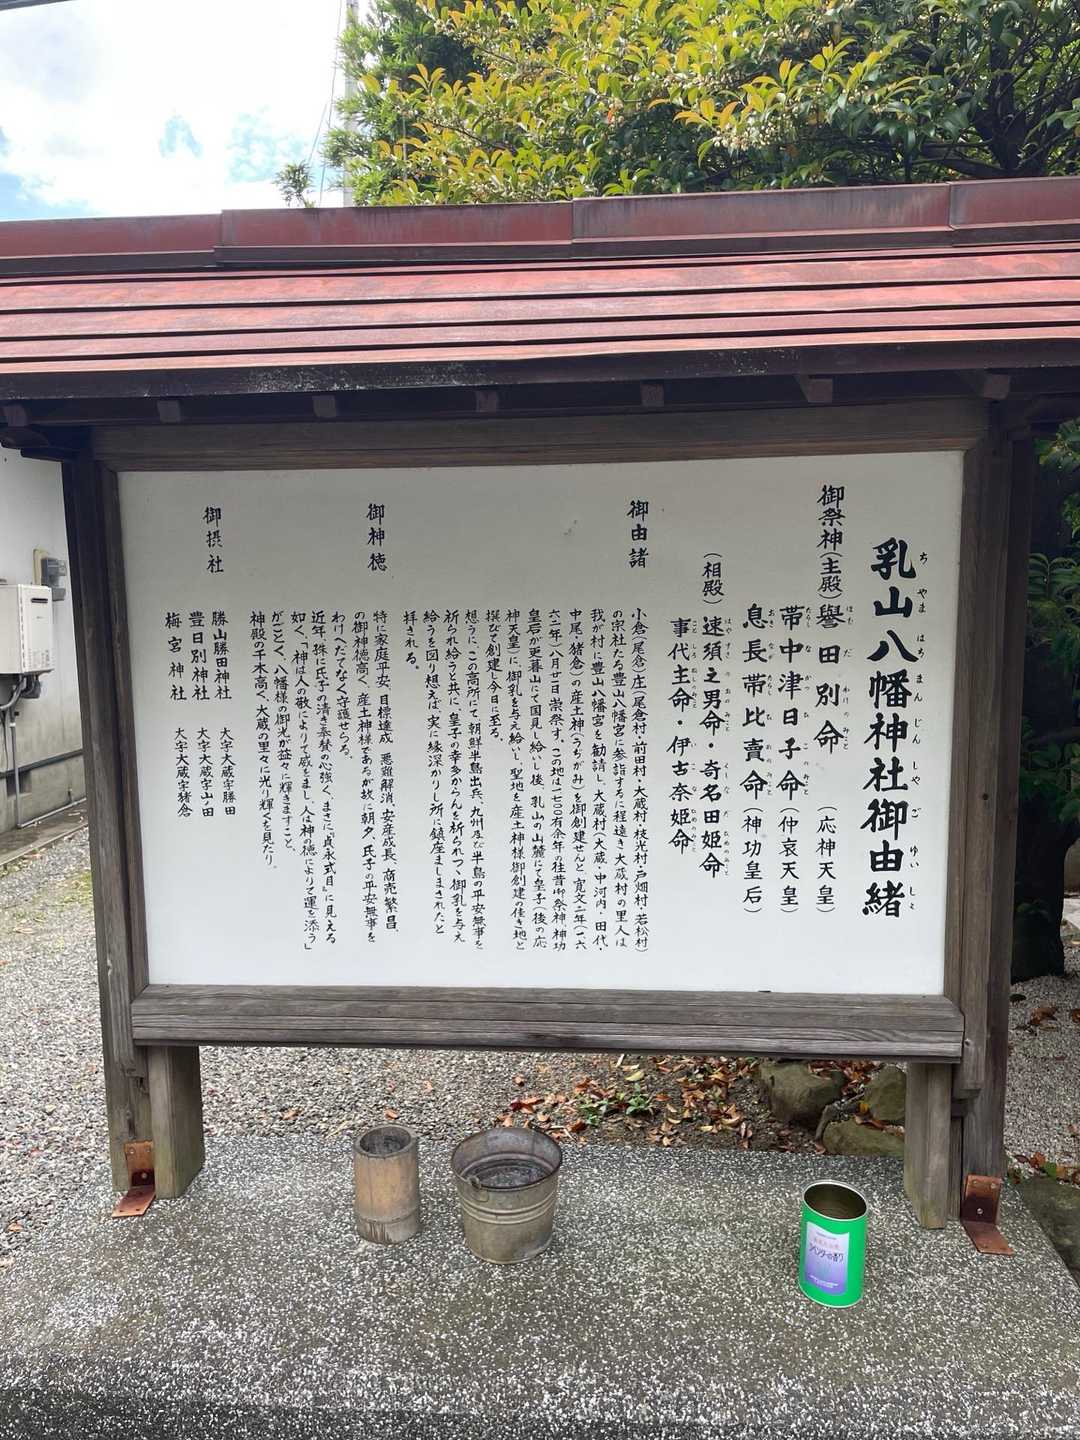 乳山八幡神社御由緒
ちやまはちまんじんしやごゆいしょ
御祭神(主殿)
譽田別命(応神天皇)
帯中津日子命(仲哀天皇)
息長帯比賣命(神功皇后)
(相殿)
速須之男命・奇名田姫命
事代主命・伊古奈姫命
御由諸
小倉(尾倉)庄(尾倉村・前田村・大蔵村・枝光村・戸畑村・若松村)
の宗社たる豊山八幡宮に参詣するに程遠き大蔵村の里人は
我が村に豊山八幡宮を勧請し、大蔵村(大蔵・中河内・田代・
中尾・猪倉)の産土神(うぢがみ)を御創建せんと、寛文二年(一六
六二年)八月廿二日崇祭す。この地は一七〇〇有余年の往昔御祭神・神功
皇后が更暮山にて国見し給いし後、乳山の山麓にて皇子(後の応
神天皇)に、御乳を与え給いし、聖地を産土神様御創建の佳き地と
撰びて創建し今日に至る。
想うに、この高所にて朝鮮半島出兵、九州及び半島の平安無事を
祈られ給うと共に、皇子の幸多からんを祈られつゝ御乳を与え
給うを図り想えば、実に縁深かりし所に鎮座ましまされたと
拝される。
御神徳
特に家庭平安、目標達成、悪難解消、安産成長、商売繁昌、
の御神徳高く、産土神様であるが故に朝夕、氏子の平安無事を
わけへだてなく守護せらる。
近年、殊に氏子の清き奉賛の心強く、まさに『貞永式目』に見える
如く、「神は人の敬によりて威をまし、人は神の徳によりて運を添う」
がごとく、八幡様の御光が益々に輝きますこと、
神殿の千木高く、大蔵の里々に光り輝くを見たり。
御摂社
勝山勝田神社 大字大蔵字勝田
豊日別神社 大字大蔵字山ノ田
梅宮神社 大字大蔵字猪倉
ラベンダーの香り